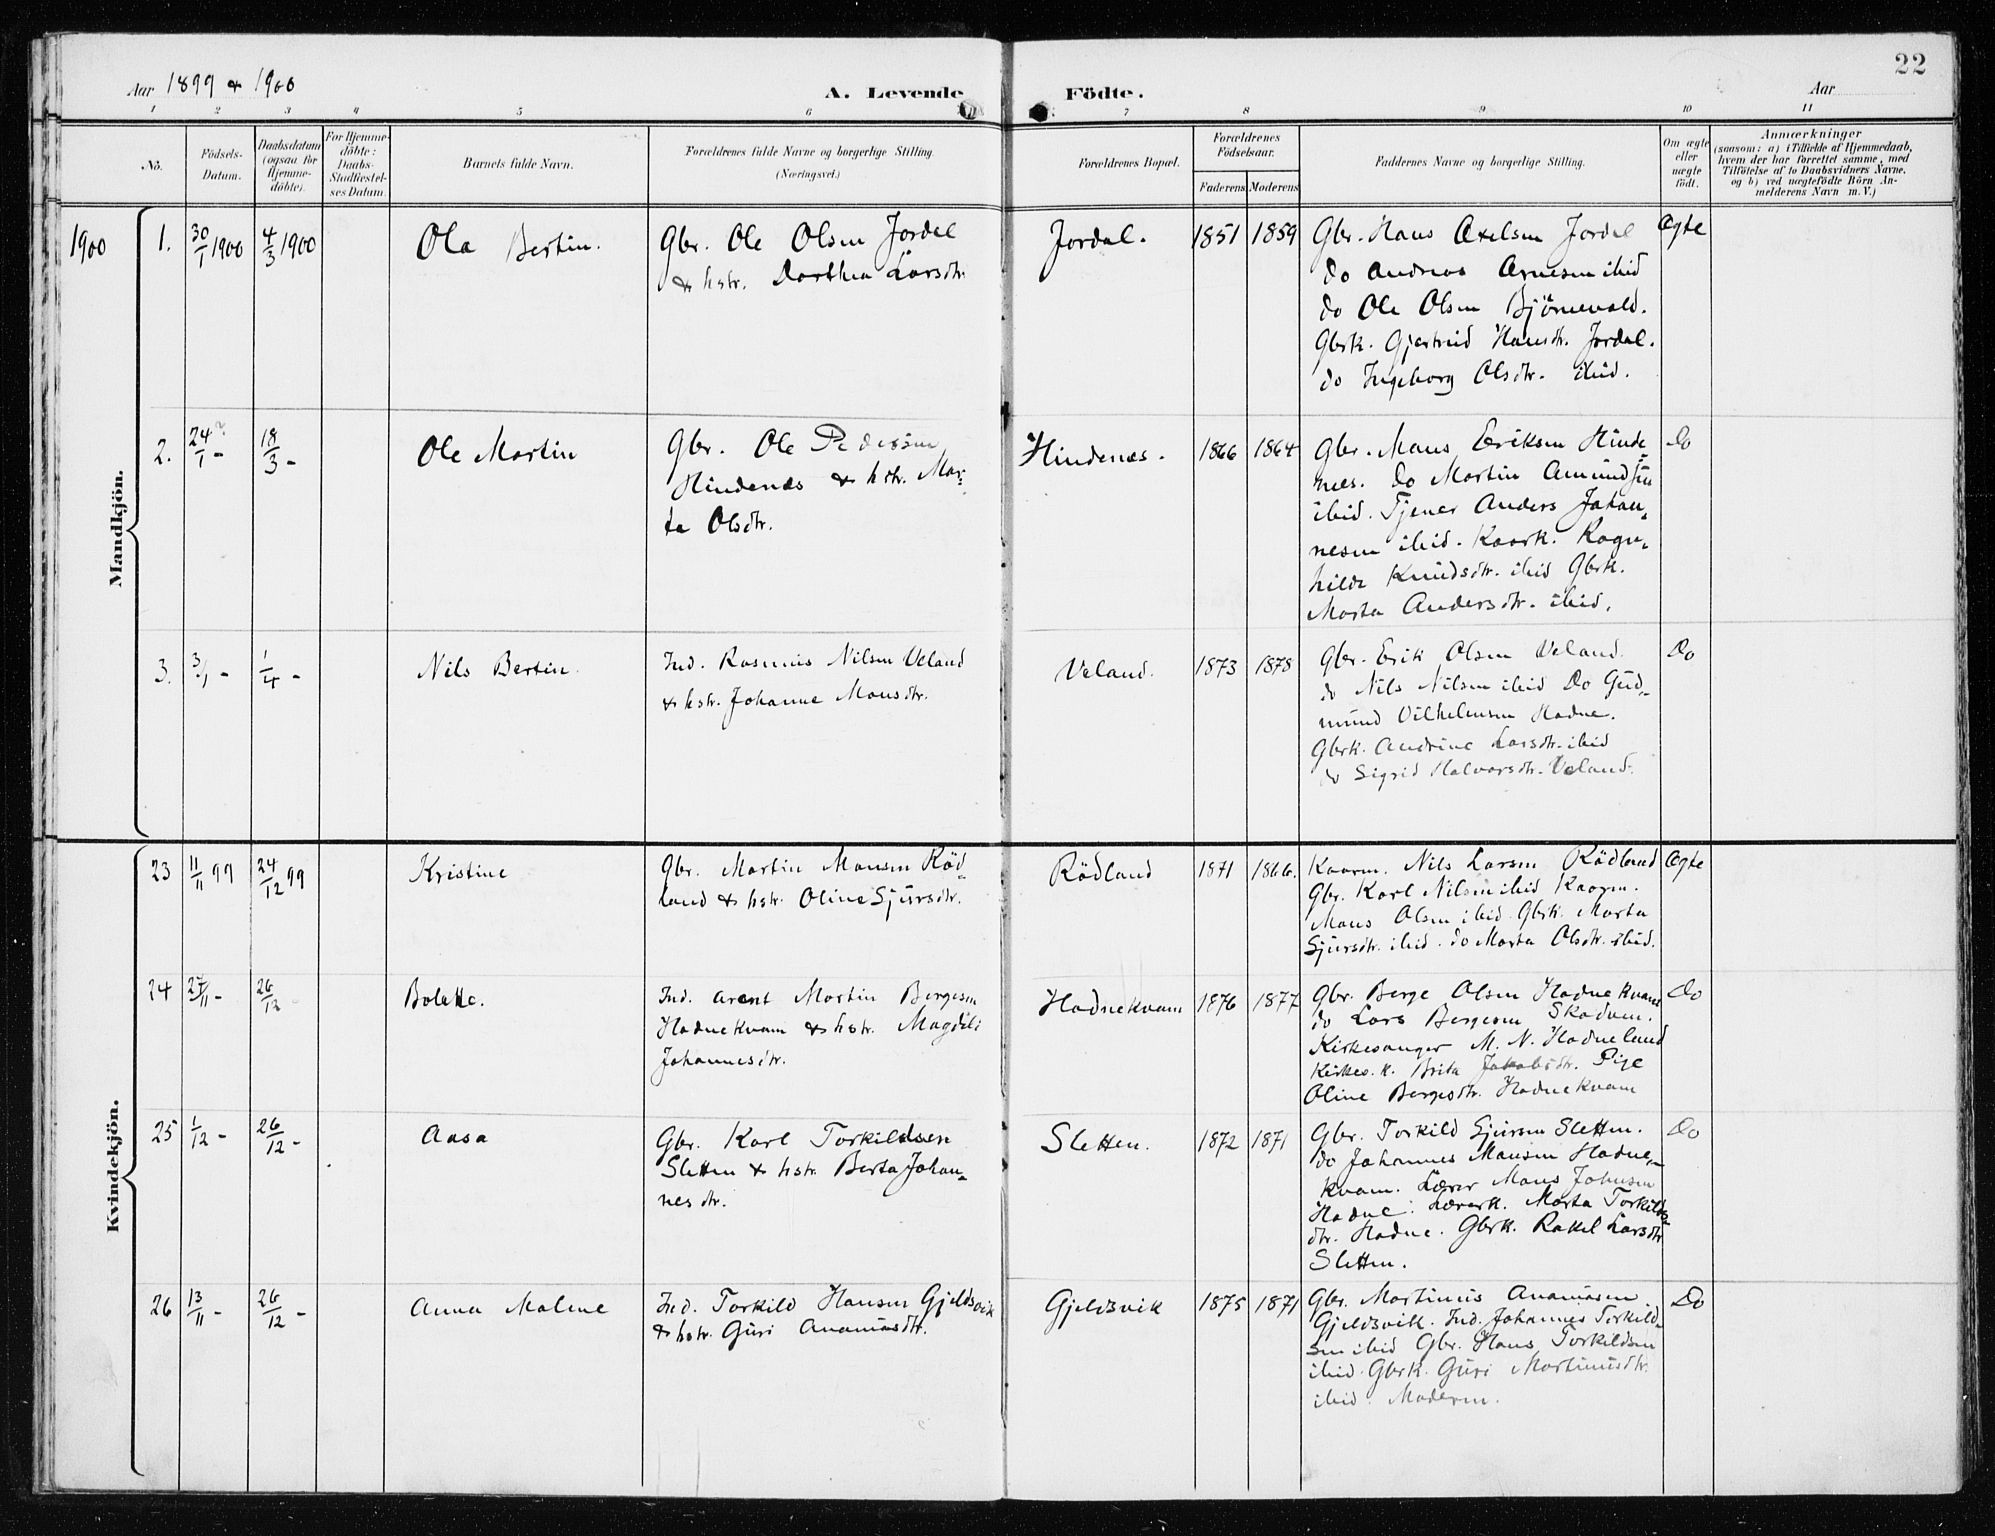 22
Aar 1899 & 1900
A. Levende Födte.
Aar
1 2 3 4 5 6 7 8 9 10 11
No.
Födsels-Datum.
Daabsdatum (ogsaa for Hjemme-döbte).
For Hjemme-döbte: Daabs-Stadfæstel-ses Datum.
Barnets fulde Navn.
Forældrenes fulde Navne og borgerlige Stilling.
(Næringsvei.)
Forældrenes Bopæl.
Forældrenes Födselsaar.
Faderens Moderens
Faddernes Navne og borgerlige Stilling.
Om ægte eller uægte födt.
Anmærkninger
(saasom: a) i Tilfælde af Hjemmedaab, hvem der har forrettet samme, med Tilföielse af to Daabsvidners Navne, og b) ved uægtefödte Börn An-melderens Navn m. V.)
Mandkjön.
1900
1. 30/1 1900 4/3 1900
Ola Bertin.
Gbr. Ole Olsen Jordal
& hstr. Dorthea Larsdtr.
Jordal.
1851 1859
Gbr. Hans Axelsen Jordal
do Andreas Arnesen ibid
do Ole Olsen Björnevold.
Gbrk. Gjertrud Hansdtr. Jordal.
do Ingeborg Olsdtr. ibid.
Ægte
2. 24/1 - 18/3 -
Ole Martin
Gbr. Ole Pedersen
Hindenes & hstr. Mar-
ta Olsdtr.
Hindenes.
1866 1864
Gbr. Mons Eriksen Hinde
nes. do Martin Amundsen
ibid. Tjener Anders Johan-
nesen ibid. Kaark. Ragn-
hilda Knudsdtr. ibid Gbrk.
Marta Andersdtr. ibid.
Do
3. 3/1 - 1/4 -
Nils Bertin.
Ind. Rasmus Nilsen Veland
& hstr. Johanne Monsdtr.
Veland.
1873 1878
Gbr. Erik Olsen Veland.
do Nils Nilsen ibid Do Gud-
mund Vilhelmsen Hadne.
Gbrk. Andrine Larsdtr. ibid
do Sigrid Halvorsdtr. Veland.
Do
Kvindekjön.
23 11/11 99 24/12 99
Kristine
Gbr. Martin Monsen Röd-
land & hstr. Oline Sjursdtr.
Rödland
1871 1866.
Kaarm. Nils Larsen Rödland
Gbr. Karl Nilsen ibid Kaarm.
Mons Olsen ibid Gbrk. Marta
Sjursdtr. ibid. do Marta Olsdtr. ibid.
Ægte
24 27/11 - 26/12
Bolette.
Ind. Arent Martin Bergesen
Hadnekvam & hstr. Magdeli
Johannesdtr.
Hadnekvam
1876 1877
Gbr. Berge Olsen Hadnekvam
do Lars Bergesen Skodven.
Kirkesanger M. N. Hadneland
Kirkes. k. Brita Jakobsdtr. Pige
Oline Bergesdtr. Hadnekvam
Do
25 1/12 - 26/12 -
Aasa
Gbr. Karl Torkildsen
Sletten & hstr. Berta Johan-
nesdtr.
Sletten.
1872 1871
Gbr. Torkild Sjursen Sletten.
do Johannes Monsen Hadne-
kvam. Lærer Mons Johnsen
Hadne. Lærerk. Marta Torkilds-
dtr. Hadne. Gbrk. Rakel Larsdtr
Sletten.
Do
26 13/11 - 26/12 -
Anna Malene
Ind. Torkild Hansen Gjeldsvik
& hstr. Guri Ananiasdtr.
Gjeldsvik
1875 1871
Gbr. Martinus Ananiasen
Gjeldsvik. Ind. Johannes Torkild-
sen ibid Gbr. Hans Torkildsen
ibid. Gbrk. Guri Martinusdtr.
ibid. Moderen.
Do